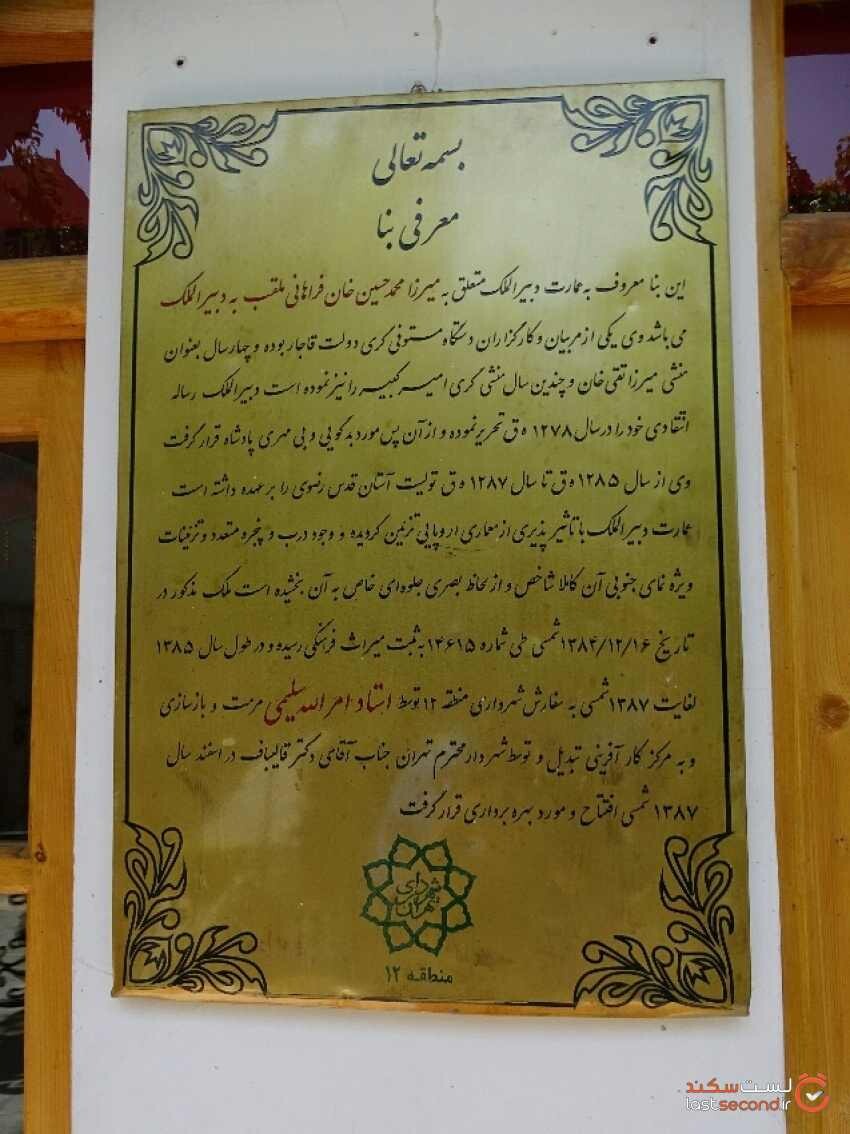 بسمه تعالی
معرفی بنا
این بنا معروف به عمارت دبیرالملک متعلق به میرزا محمدحسین خان فراهانی ملقب به دبیرالملک
می باشد وی یکی از مربیان و کارگزاران دستگاه مستوفی گری دولت قاجار بوده و چهار سال بعنوان
منشی میرزا تقی خان و چندین سال منشی گری امیرکبیر را نیز نموده است دبیرالملک رساله
انتقادی خود را در سال ۱۲۷۸ ه ق تحریر نموده و از آن پس مورد بدگویی و بی مهری پادشاه قرار گرفت
وی از سال ۱۲۸۵ ه ق تا سال ۱۲۸۷ ه ق تولیت آستان قدس رضوی را بر عهده داشته است
عمارت دبیرالملک با تاثیر پذیری از معماری اروپایی تزئین گردیده و وجود درب و پنجره متعدد و تزئینات
ویژه نمای جنوبی آن کاملا شاخص و از لحاظ بصری جلوه‌ای خاص به آن بخشیده است ملک مذکور در
تاریخ ۱۳۸۴/۱۲/۱۶ شمسی طی شماره ۱۴۶۱۵ به ثبت میراث فرهنگی رسیده و در طول سال ۱۳۸۵
لغایت ۱۳۸۷ شمسی به سفارش شهرداری منطقه ۱۲ توسط استاد امرالله سلیمی مرمت و بازسازی
و به مرکز کار آفرینی تبدیل و توسط شهردار محترم تهران جناب آقای دکتر قالیباف در اسفند سال
۱۳۸۷ شمسی افتتاح و مورد بهره برداری قرار گرفت
شهرداری تهران
منطقه ۱۲
لست سکند
lastsecond.ir